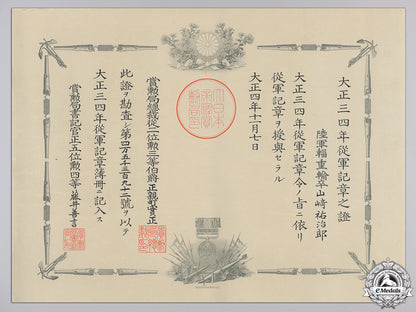 大正三四年從軍記章之證
陸軍輜重輸卒山崎祐治郎
大正三四年從軍記章令ノ旨ニ依リ
從軍記章ヲ授與セラル
大正四年十一月七日
賞勲局總裁從二位勲三等伯爵正親町實正
此證ヲ勘査シ第四万五千三百九十二號ヲ以テ
大正三四年從軍記章簿冊ニ記入ス
賞勲局書記官正五位勲四等藤井善言
eMedals